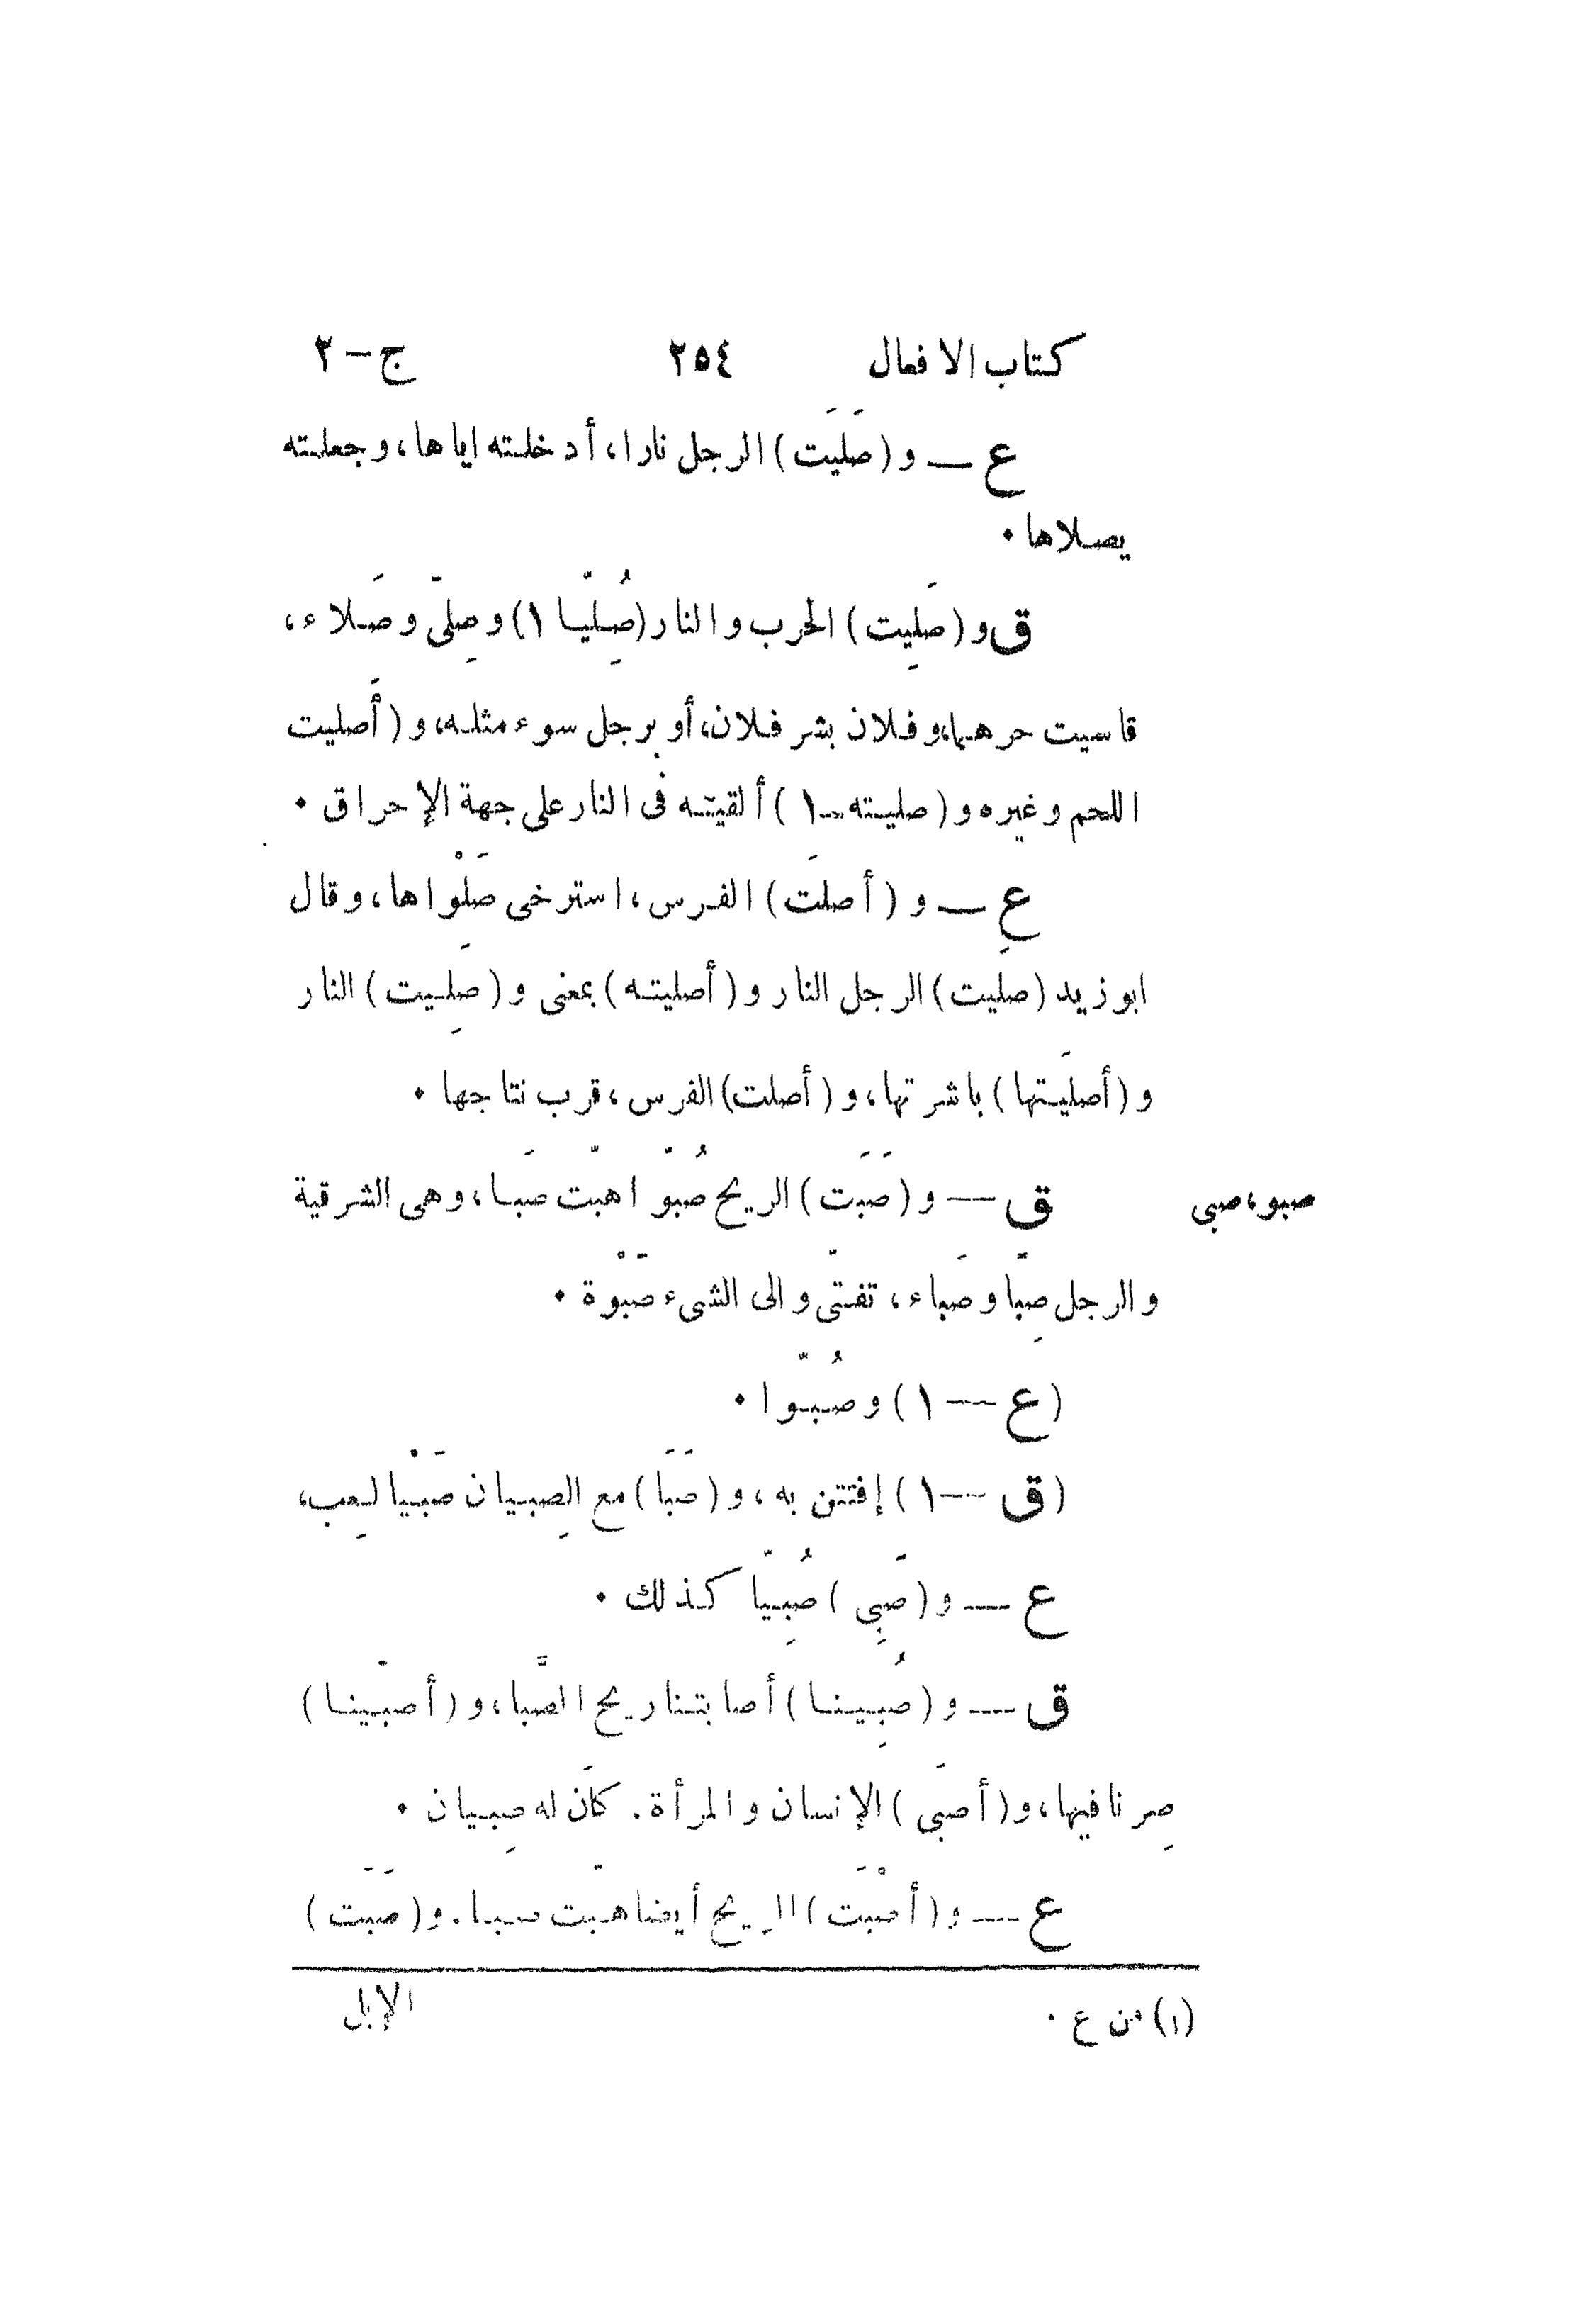 كتاب الافعال ٢٥٤ ج – ٢
ع — و (صَليَت) الرجل نارا، أدخلته اياها، وجعلته
يصلاها •
ق و (صَلِيت) الحرب والنار (صُلِيّا ١) وصِلىّ وصَلاء،
قاسيت حرهما، وفلان بشر فلان، أو برجل سوء مثله، و (أَصليت
اللحم وغيره و (صليته – ١) ألقيته فى النار على جهة الإحراق •
ع — و (أصلَت) الفرس، استرخى صَلْواها، وقال
ابو زيد (صليت) الرجل النار و (أصليته) بمعنى و (صَلِيت) النار
و (أصليَتها) باشرتها، و (أصلت) الفرس، قرب نتاجها •
صبو، صبى
ق — و (صَبَت) الريح صُبوّا هبّت صَبا، وهى الشرقية
والرجل صِبًا وصَباء، تفتّى والى الشىء صَبْوة •
(ع — ١) وصُبّوا •
(ق — ١) إفتتن به، و (صَبَا) مع الصِبيان صَبْيا لعِب،
ع — و (صَبِى) صُبِيّا كذلك •
ق — و (صُبِينا) أصابتنا ريح الصَّبا، و (أصبَينا)
صِرنا فيها، و (أصبَى) الإنسان والمرأة. كَان له صِبيان •
ع — و (أصْبَت) الريح أيضا هبّت صبا. و (صَبَت)
(١) من ع •
الإبل